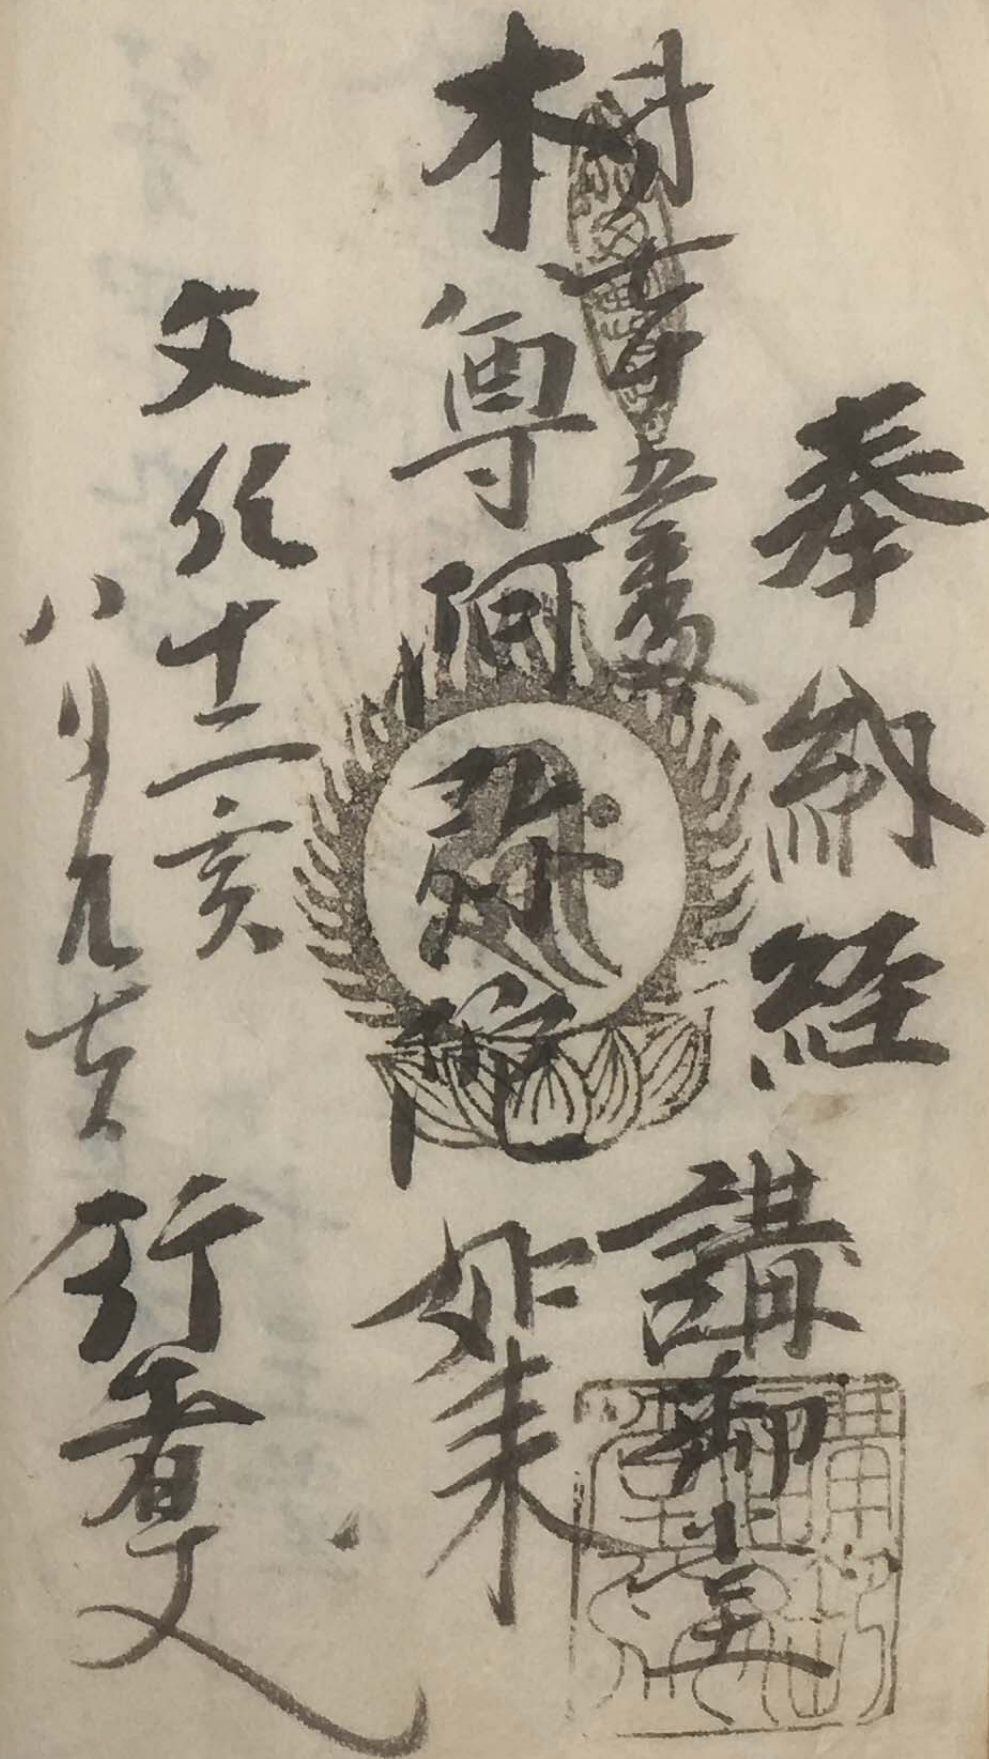 奉納経
講御堂
本尊阿弥陀如来
文化十二亥
八月九吉
行者丈